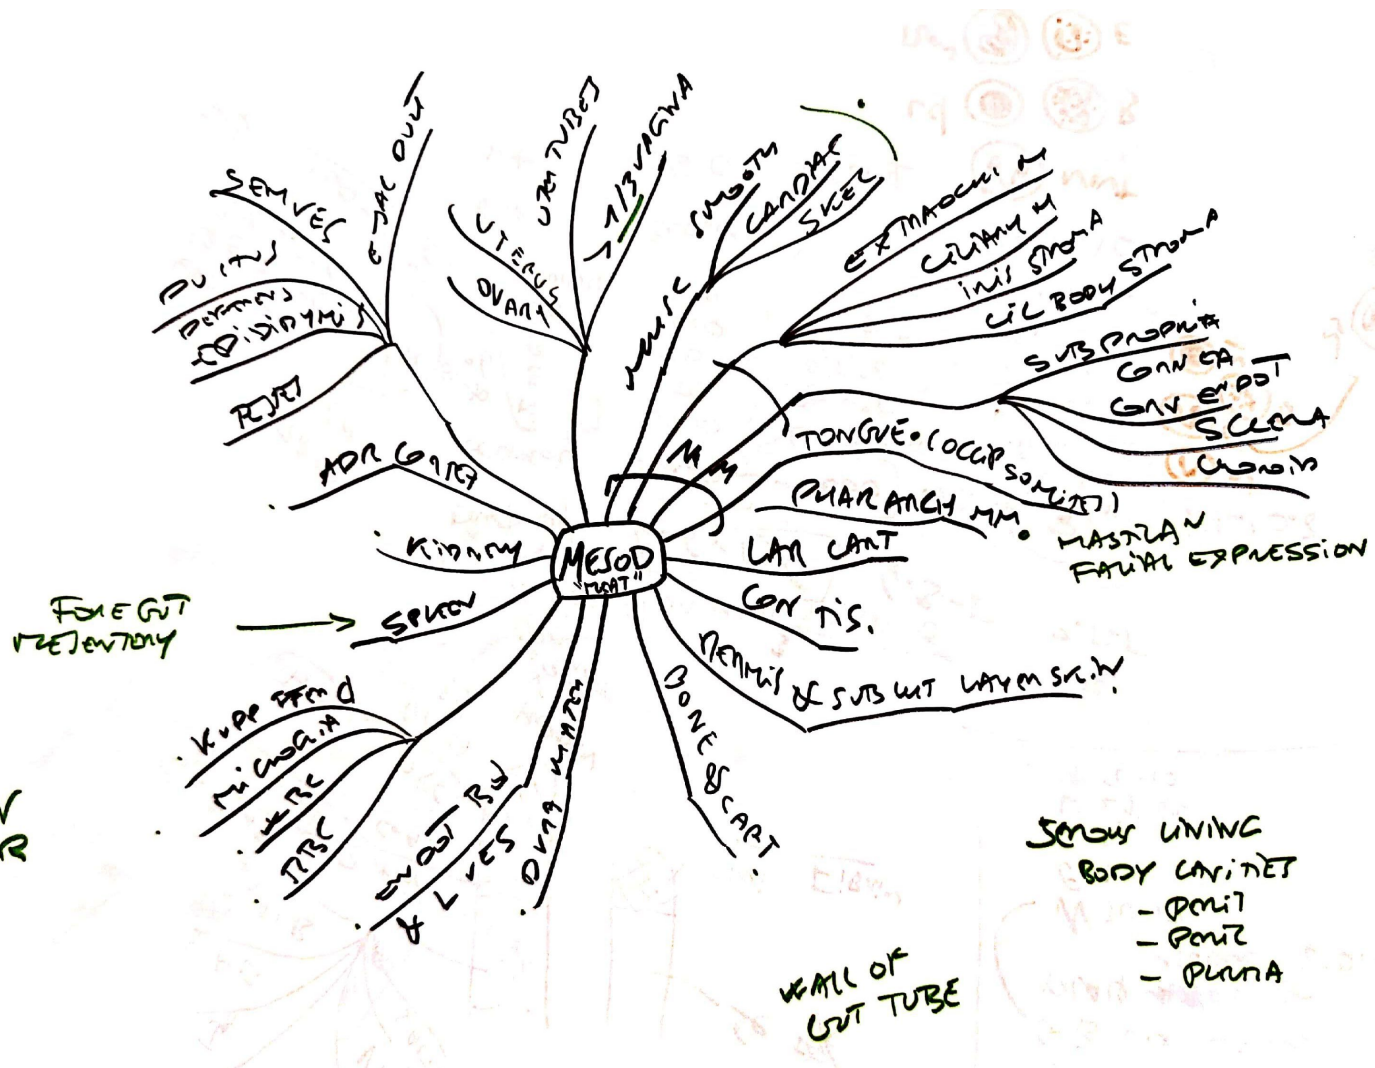 SEM VES
EJAC DUCT
DUCTUS
DEFERENS
EPIDIDYMIS
TESTES
UTERUS
OVARY
UTER TUBES
> 1/3 VAGINA
MUSC
SMOOTH
CARDIAC
SKEL
EXTRAOCULI M
CILIARY M
IRIS STROMA
CIL BODY STROMA
SUBS PROPRIA
CORNEA
CORN ENDOT
SCLERA
CHOROID
MM
TONGUE • (OCCIP SOMITES)
PHAR ARCH MM.
MAST
FACIAL EXPRESSION
LAR CART
CON TIS.
DERMIS & SUBCUT LAYER SKIN
BONE & CART
DURA MATER
ENDOT BV
& L VES
RBC
WBC
MICROGLIA
KUPFFER C
SPLEEN
FOREGUT
MESENTERY
KIDNEY
ADR CORTEX
MESOD
"MEAT"
SEROUS LINING
BODY CAVITIES
- PERIT
- PERIC
- PLEURA
WALL OF
GUT TUBE